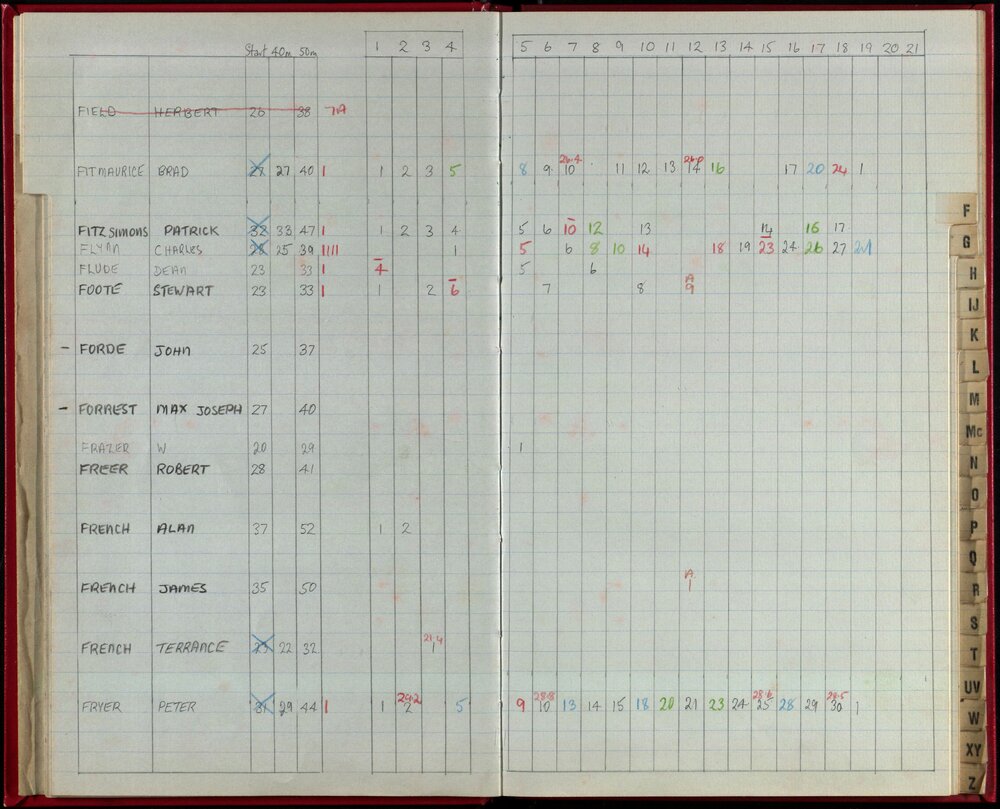 Start 40m 50m 1 2 3 4 5 6 7 8 9 10 11 12 13 14 15 16 17 18 19 20 21
FIELD HERBERT 26 38 7A
26.4
FITMAURICE BRAD 27 40 1 1 2 3 5 8 9 10 11 12 13 14 16 17 20 24 1
FITZSIMONS PATRICK 32 33 47 1 1 2 3 4 5 6 10 12 13 14 16 17
FLYNN CHARLES 25 39 1111 1 5 6 8 10 14 18 19 23 24 26 27
FLUDE DEAN 23 33 1 4 5 6
A
FOOTE STEWART 23 33 1 1 2 6 7 8 9
- FORDE JOHN 25 37
- FORREST MAX JOSEPH 27 40
FRAZIER W 20 29 1
FREER ROBERT 28 41
FRENCH ALAN 37 52 1 2
A
FRENCH JAMES 35 50 1
21.4
FRENCH TERRANCE 23 22 32 1
29.2 28.8 28.6 28.5
FRYER PETER 31 29 44 1 1 2 5 9 10 13 14 15 18 20 21 23 24 25 28 29 30 1
F
G
H
IJ
K
L
M
Mc
N
O
P
Q
R
S
T
UV
W
XY
Z